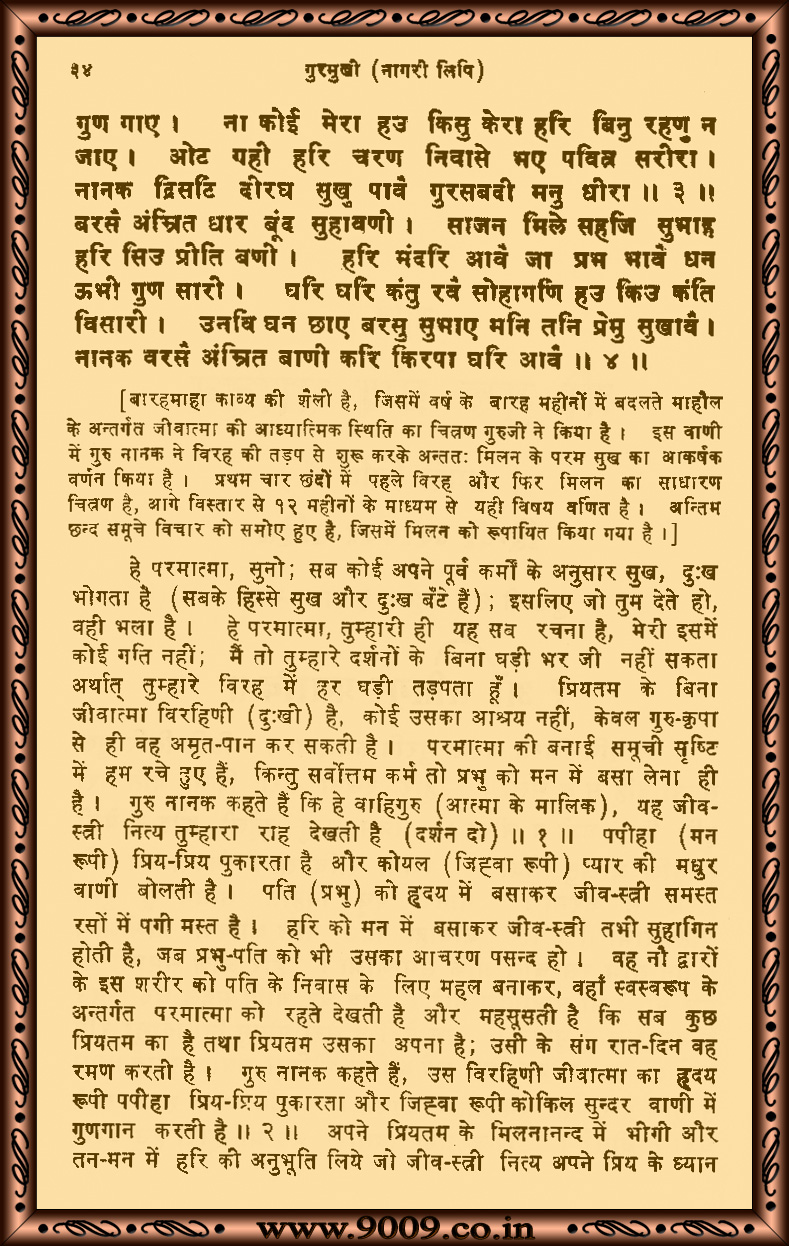 ३४ गुरमुखी (नागरी लिपि)
गुण गाए । ना कोई मेरा हउ किसु केरा हरि बिनु रहणु न
जाए । ओट गही हरि चरण निवासे भए पवित्र सरीरा ।
नानक द्रिसटि दीरघ सुखु पावै गुरसबदी मनु धीरा ॥ ३ ॥
बरसै अंम्रित धार बूंद सुहावणी । साजन मिले सहजि सुभाइ
हरि सिउ प्रीति बणी । हरि मंदरि आवै जा प्रभ भावै धन
ऊभी गुण सारी । घरि घरि कंतु रवै सोहागणि हउ किउ कंति
विसारी । उनवि घन छाए बरसु सुभाए मनि तनि प्रेमु सुखावै ।
नानक वरसै अंम्रित बाणी करि किरपा घरि आवै ॥ ४ ॥
[बारहमाहा काव्य की शैली है, जिसमें वर्ष के बारह महीनों में बदलते माहौल
के अन्तर्गत जीवात्मा की आध्यात्मिक स्थिति का चित्रण गुरुजी ने किया है । इस वाणी
में गुरु नानक ने विरह की तड़प से शुरू करके अन्ततः मिलन के परम सुख का आकर्षक
वर्णन किया है । प्रथम चार छंदों में पहले विरह और फिर मिलन का साधारण
चित्रण है, आगे विस्तार से १२ महीनों के माध्यम से यही विषय वर्णित है । अन्तिम
छन्द समूचे विचार को समोए हुए है, जिसमें मिलन को रूपायित किया गया है ।]
हे परमात्मा, सुनो; सब कोई अपने पूर्व कर्मों के अनुसार सुख, दुःख
भोगता है (सबके हिस्से सुख और दुःख बँटे हैं); इसलिए जो तुम देते हो,
वही भला है । हे परमात्मा, तुम्हारी ही यह सब रचना है, मेरी इसमें
कोई गति नहीं; मैं तो तुम्हारे दर्शनों के बिना घड़ी भर जी नहीं सकता
अर्थात् तुम्हारे विरह में हर घड़ी तड़पता हूँ । प्रियतम के बिना
जीवात्मा विरहिणी (दुःखी) है, कोई उसका आश्रय नहीं, केवल गुरु-कृपा
से ही वह अमृत-पान कर सकती है । परमात्मा की बनाई समूची सृष्टि
में हम रचे हुए हैं, किन्तु सर्वोत्तम कर्म तो प्रभु को मन में बसा लेना ही
है । गुरु नानक कहते हैं कि हे वाहिगुरु (आत्मा के मालिक), यह जीव-
स्त्री नित्य तुम्हारा राह देखती है (दर्शन दो) ॥ १ ॥ पपीहा (मन
रूपी) प्रिय-प्रिय पुकारता है और कोयल (जिह्वा रूपी) प्यार की मधुर
वाणी बोलती है । पति (प्रभु) को हृदय में बसाकर जीव-स्त्री समस्त
रसों में पगी मस्त है । हरि को मन में बसाकर जीव-स्त्री तभी सुहागिन
होती है, जब प्रभु-पति को भी उसका आचरण पसन्द हो । वह नौ द्वारों
के इस शरीर को पति के निवास के लिए महल बनाकर, वहाँ स्वस्वरूप के
अन्तर्गत परमात्मा को रहते देखती है और महसूसती है कि सब कुछ
प्रियतम का है तथा प्रियतम उसका अपना है; उसी के संग रात-दिन वह
रमण करती है । गुरु नानक कहते हैं, उस विरहिणी जीवात्मा का हृदय
रूपी पपीहा प्रिय-प्रिय पुकारता और जिह्वा रूपी कोकिल सुन्दर वाणी में
गुणगान करती है ॥ २ ॥ अपने प्रियतम के मिलनानन्द में भीगी और
तन-मन में हरि की अनुभूति लिये जो जीव-स्त्री नित्य अपने प्रिय के ध्यान
www.9009.co.in